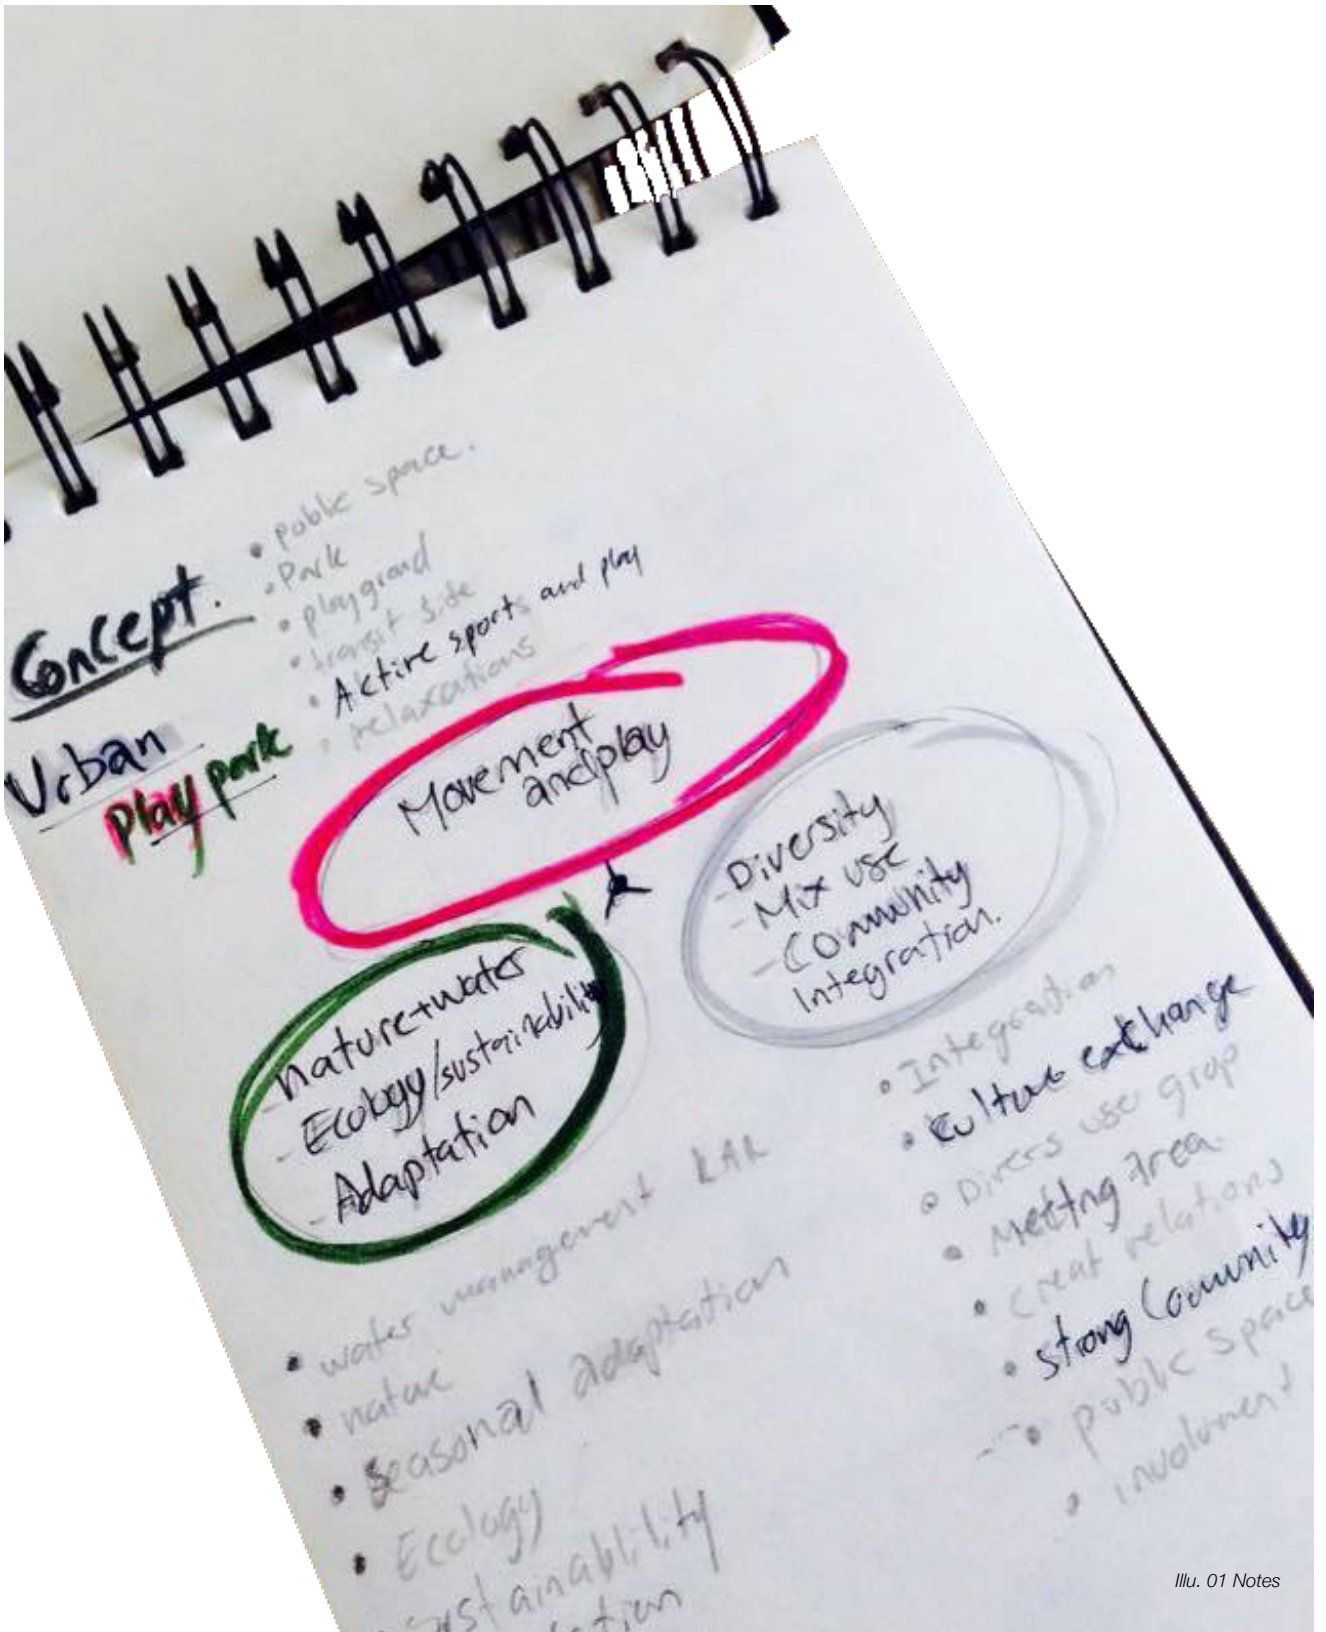 Concept.
Urban
Play park
• public space.
• Park
• playgrond
• transit side
• Active sports and play
• relaxations
Movement
and play
- Diversity
- Mix use
- Community
Integration.
- nature+water
- Ecology/sustainability
- Adaptation
• Integration
• culture exchange
• Divers use grop
• Meeting area
• creat relations
• strong Community
• public space
• involvment
• water management LAR
• nature
• seasonal adaptation
• Ecology
Sustainablility
Illu. 01 Notes